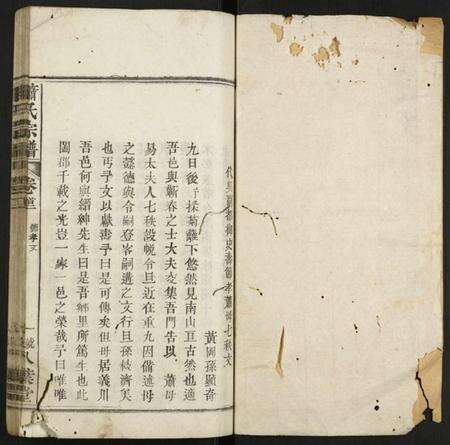 黃岡孫顯奇
九日後予採菊籬下悠然見南山亘古然也適
吾邑與蘄春之士大夫交集吾門告以　蕭母
易太夫人七秩設帨令旦近在重九因備述母
之懿德與令嗣登峯嗣遺之文行且孫枝濟美
也丐予文以獻壽予曰是可傳矣但母居義川
吾邑何與縉紳先生曰是吾鄉里所篤生也此
闔郡千載之光豈一家一邑之榮哉予曰唯唯
氏宗譜
卷
節孝文